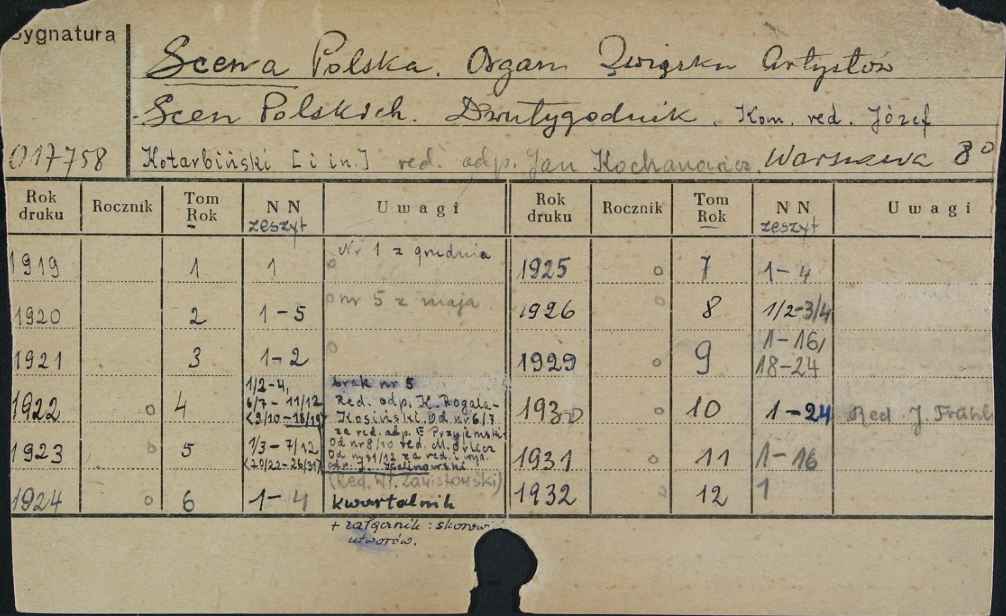 Sygnatura
Scena Polska. Organ Związku Artystów
Scen Polskich. Dwutygodnik. Kom. red. Józef
017758 Kotarbiński [i in.] red. odp. Jan Kochanowicz. Warszawa 8°
Rok druku Rocznik Tom Rok NN zeszyt Uwagi Rok druku Rocznik Tom Rok NN zeszyt Uwagi
1919 1 1 Nr 1 z grudnia 1925 7 1-4
1920 2 1-5 nr 5 z maja 1926 8 1/2-3/4
1921 3 1-2 1929 9 1-16, 18-24
1922 4 1/2-4, 6/7-11/12 (9/10-18/19) brak nr 5 1930 10 1-24 Red J. Frühl
Red. odp. H. Rogala-
Kosiński. Od nr 6/7
za red. odp. E Przyjemski
1923 5 1/3-7/12 (20/22-28/31) Od nr 8/10 red. M. 1931 11 1-16
Od nr 11/12 za red. i wyd.
odp. J. Kalinowski
(Red. Wł. Zawistowski)
1924 6 1-4 kwartalnik 1932 12 1
+ załącznik: skorow
utworów.